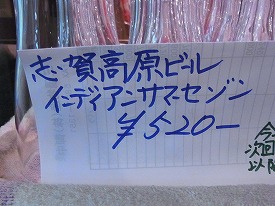 志賀高原ビル
インディアンサマーセゾン
¥520-
今
次回
以降